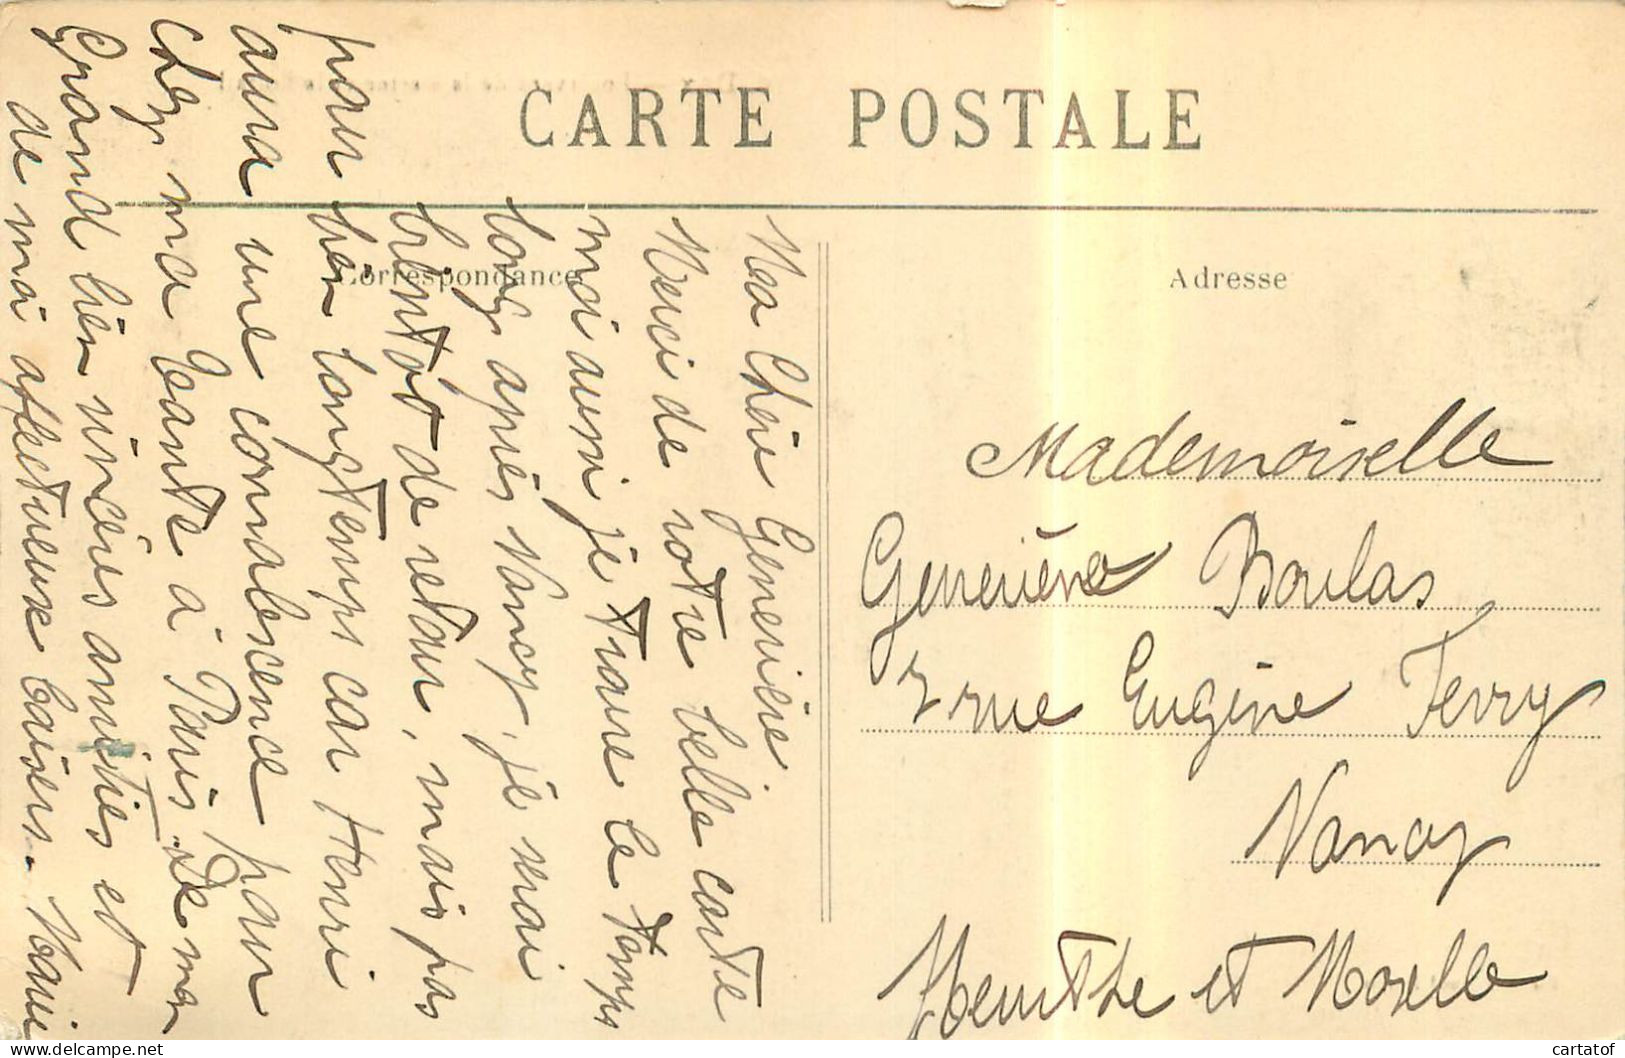 CARTE POSTALE
Correspondance
Adresse
Ma Chère Geneviève
Merci de votre belle carte
moi aussi je trouve le temps
long après Nancy, je serai
bientôt de retour, mais pas
pour bien longtemps car Henri
aura une convalescence pour
chez ma tante à Paris. De ma
Grand bien sincères amitiés et
de moi affectueux baisers. Marie
Mademoiselle
Geneviève Boulas
2 rue Eugène Ferry
Nancy
Meurthe et Moselle
cartatof